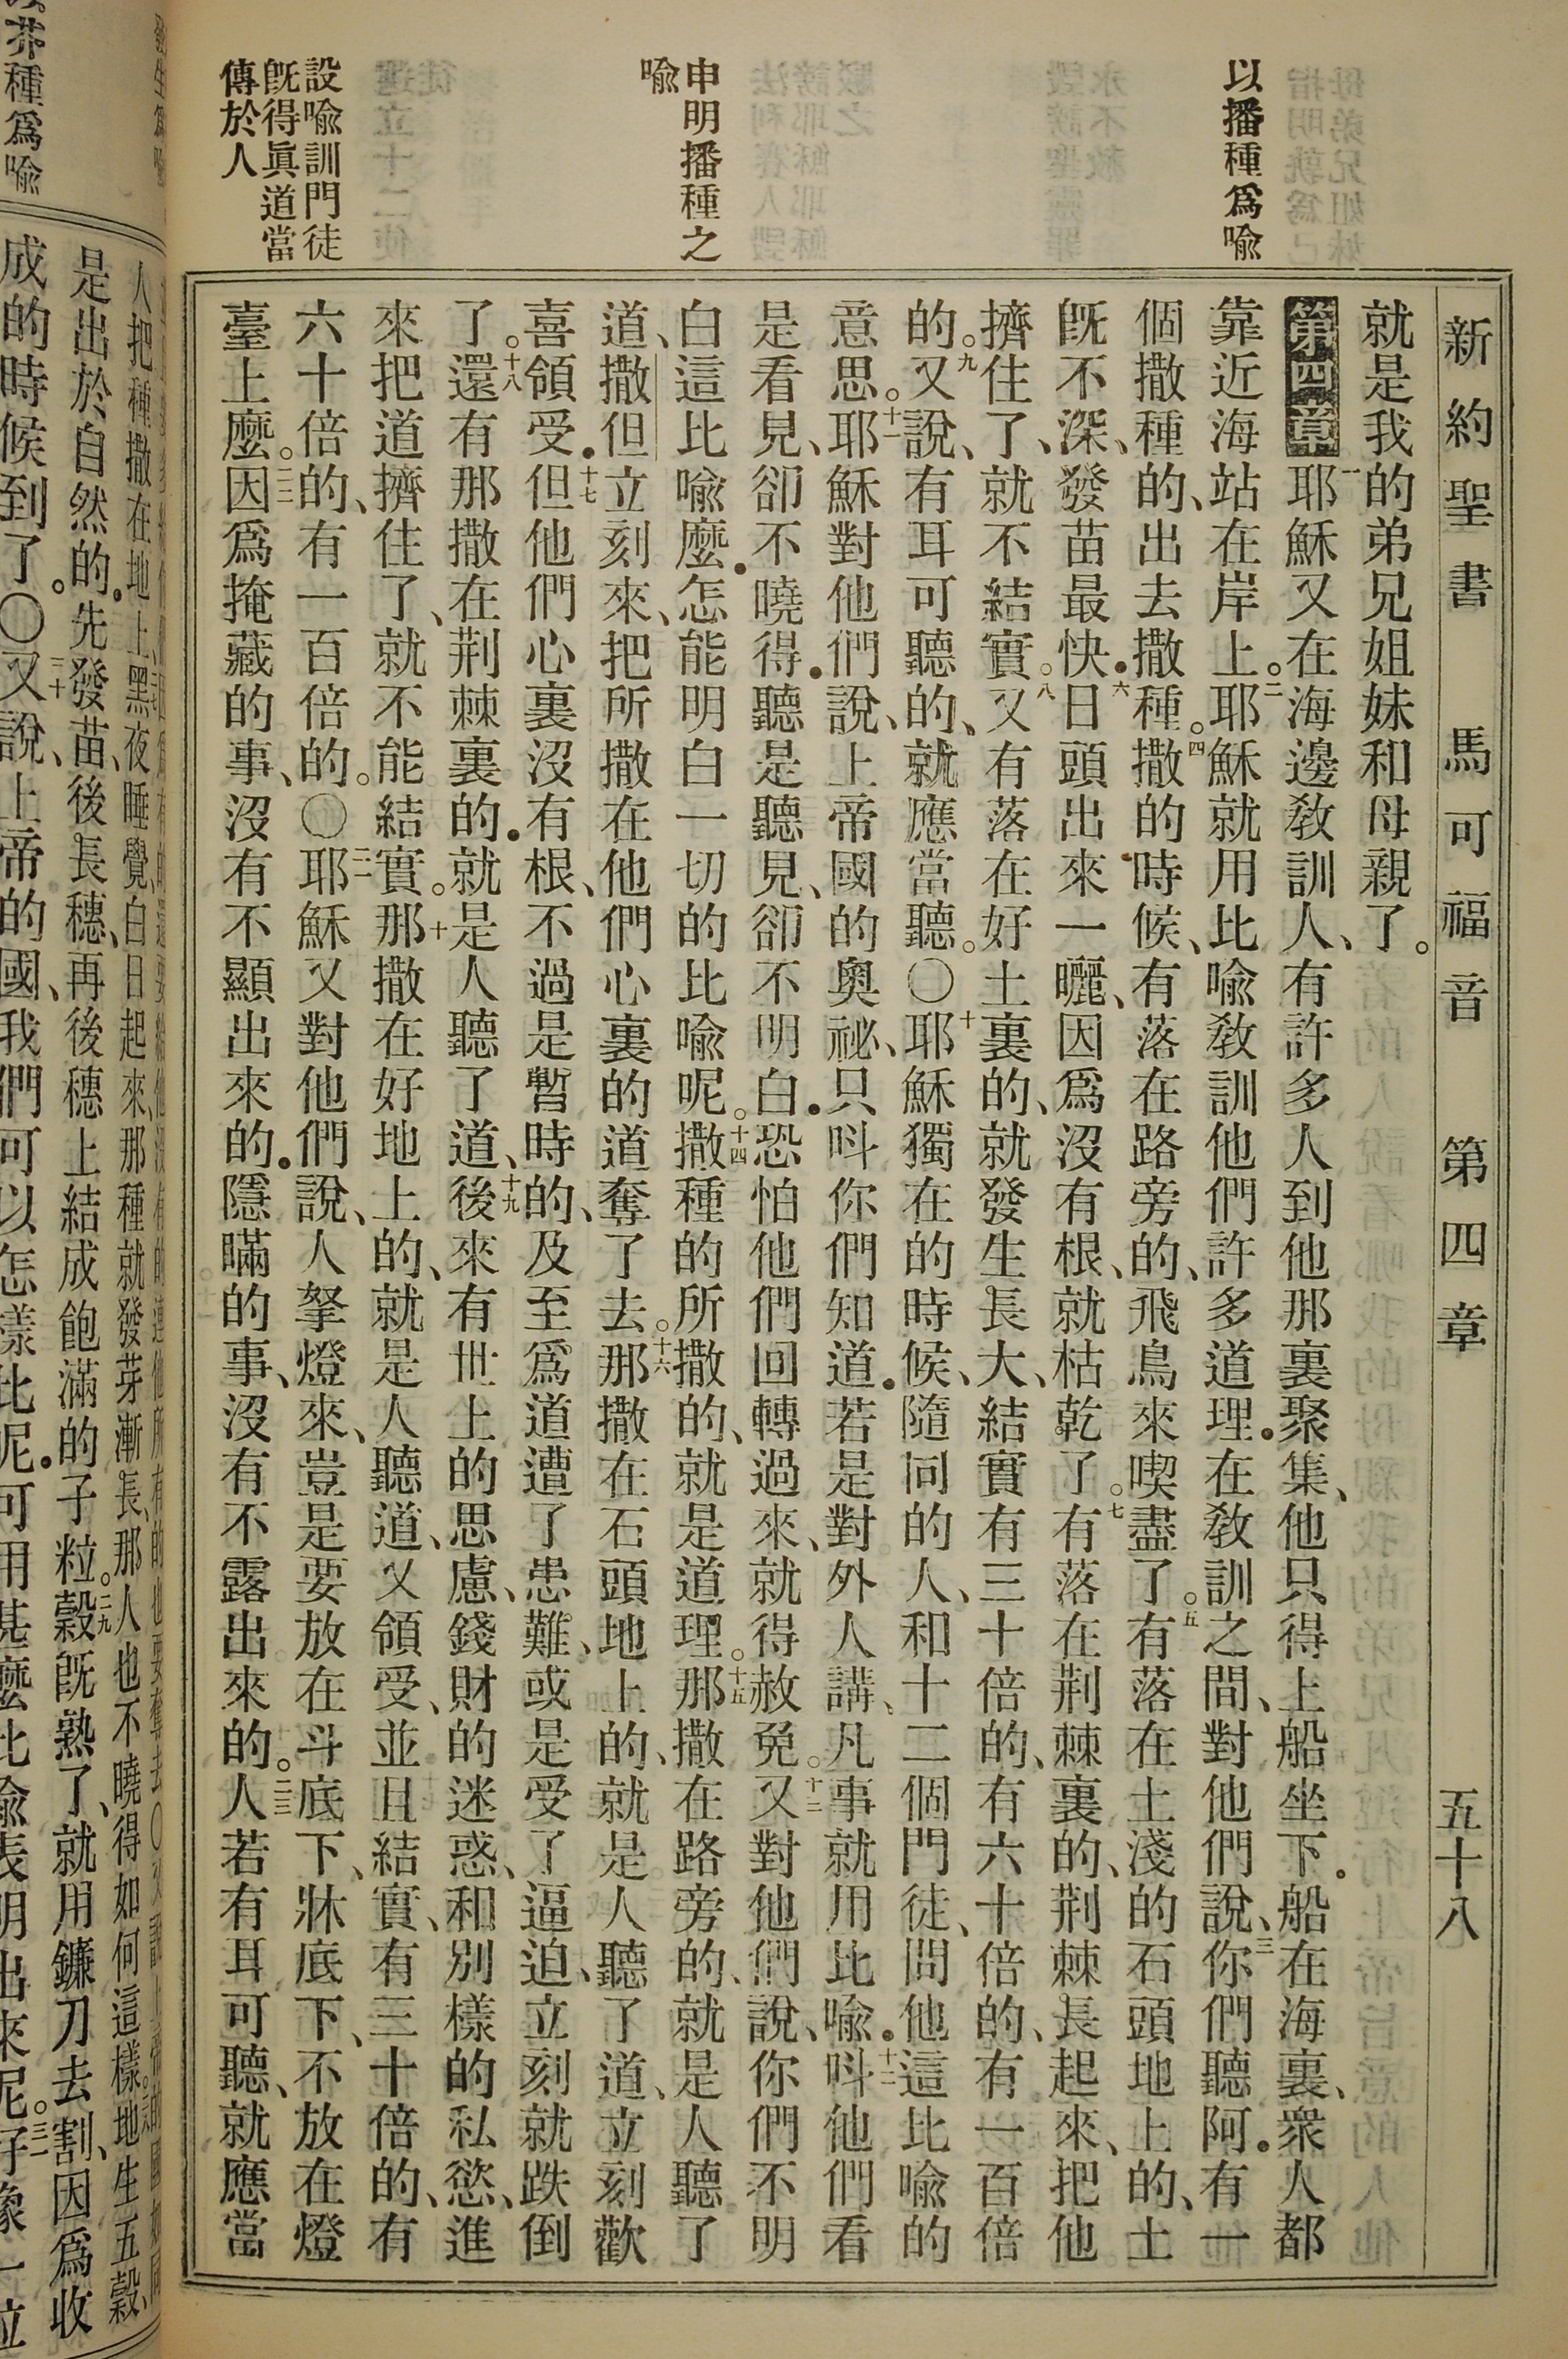 新約聖書 馬可福音 第四章 五十八
以播種爲喩
申明播種之
喩
設喩訓門徒
旣得眞道當
傳於人
就是我的弟兄姐妹和母親了。
第四章 一耶穌又在海邊敎訓人、有許多人到他那裏聚集、他只得上船坐下．船在海裏、衆人都
靠近海站在岸上。二耶穌就用比喩敎訓他們許多道理．在敎訓之間、對他們說、三你們聽阿．有一
個撒種的、出去撒種。四撒的時候、有落在路旁的、飛鳥來喫盡了。五有落在土淺的石頭地上的、土
旣不深、發苗最快．六日頭出來一曬、因爲沒有根、就枯乾了。七有落在荆棘裏的、荆棘長起來、把他
擠住了、就不結實。八又有落在好土裏的、就發生長大、結實有三十倍的、有六十倍的、有一百倍
的。九又說、有耳可聽的、就應當聽。〇十耶穌獨在的時候、隨同的人、和十二個門徒、問他這比喩的
意思。十一耶穌對他們說、上帝國的奧祕、只呌你們知道．若是對外人講、凡事就用比喩．十二呌他們看
是看見、卻不曉得．聽是聽見、卻不明白．恐怕他們回轉過來、就得赦免。十三又對他們說、你們不明
白這比喩麼．怎能明白一切的比喩呢。十四撒種的所撒的、就是道理。十五那撒在路旁的、就是人聽了
道、撒但立刻來、把所撒在他們心裏的道奪了去。十六那撒在石頭地上的、就是人聽了道、立刻歡
喜領受．十七但他們心裏沒有根、不過是暫時的、及至爲道遭了患難、或是受了逼迫、立刻就跌倒
了。十八還有那撒在荆棘裏的．就是人聽了道、十九後來有世上的思慮、錢財的迷惑、和別樣的私慾、進
來把道擠住了、就不能結實。二十那撒在好地上的、就是人聽道、又領受、並且結實、有三十倍的、有
六十倍的、有一百倍的。〇二一耶穌又對他們說、人拏燈來、豈是要放在斗底下、牀底下、不放在燈
臺上麼。二二因爲掩藏的事、沒有不顯出來的．隱瞞的事、沒有不露出來的。二三人若有耳可聽、就應當
以芥種爲喩
是出於自然的．先發苗、後長穗、再後穗上結成飽滿的子粒。二九穀旣熟了、就用鐮刀去割、因爲收
成的時候到了。〇三十又說、上帝的國、我們可以怎樣比呢．可用甚麼比喩表明出來呢。三一好像一粒